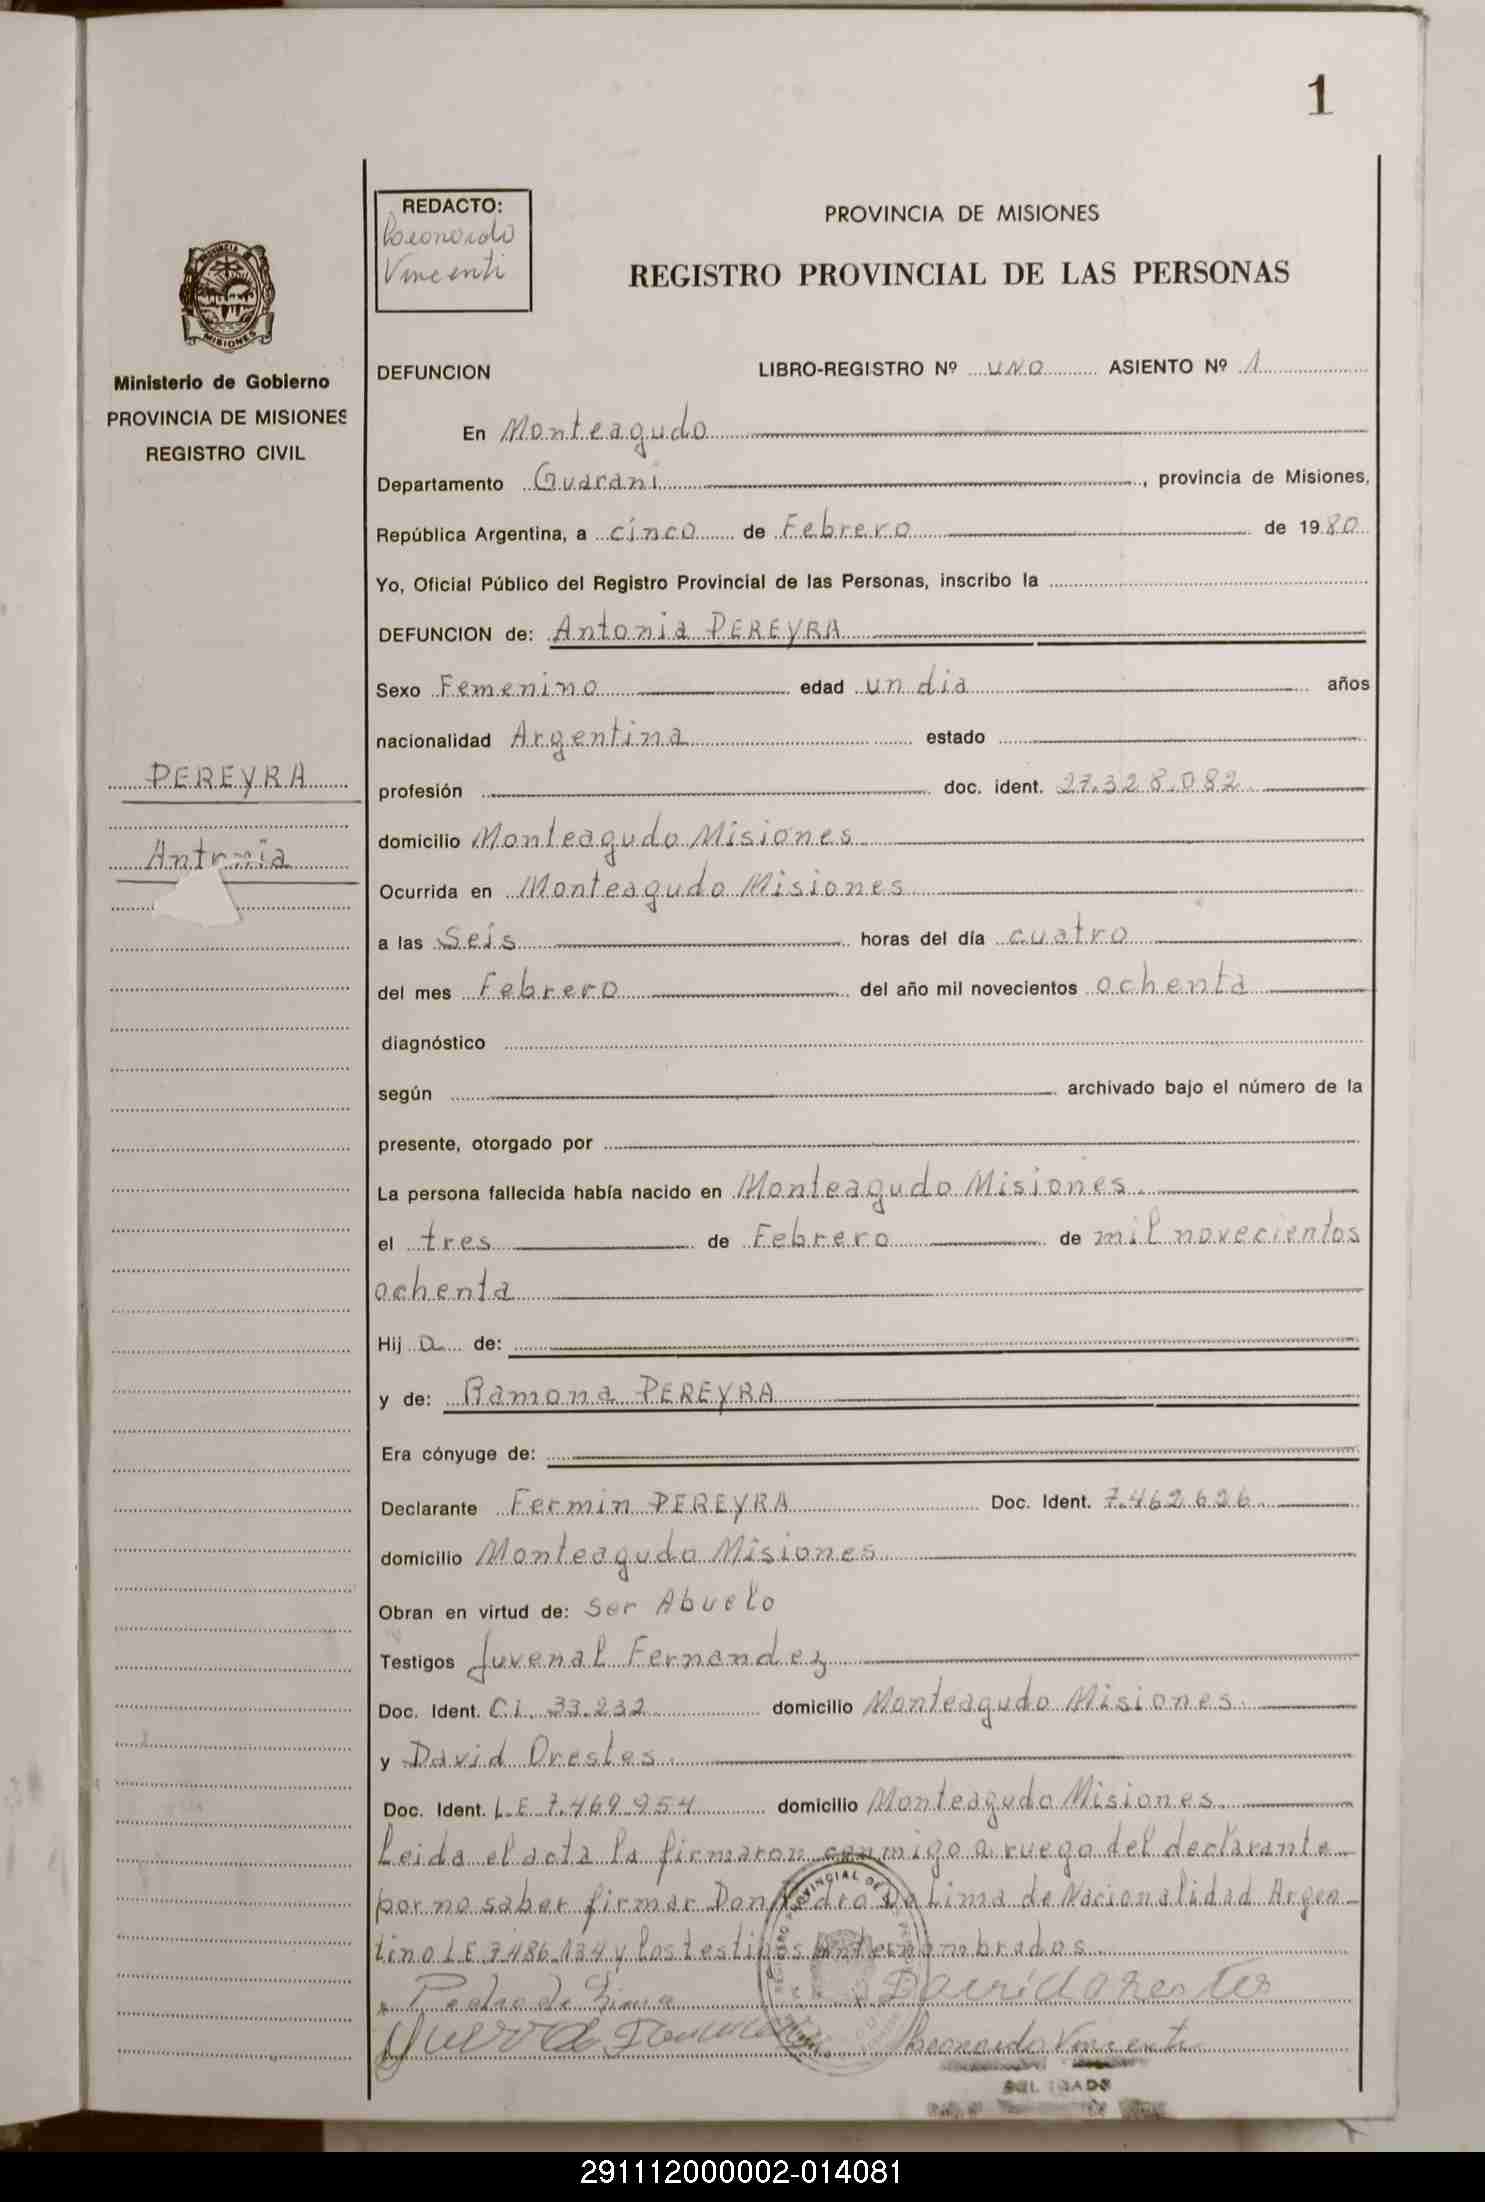 1
REDACTO:
Leonardo
Vincenti
PROVINCIA DE MISIONES
REGISTRO PROVINCIAL DE LAS PERSONAS
MISIONES
Ministerio de Gobierno
PROVINCIA DE MISIONES
REGISTRO CIVIL
DEFUNCION LIBRO-REGISTRO Nº UNO ASIENTO Nº 1
En Monteagudo
Departamento Guarani, provincia de Misiones,
República Argentina, a cinco de Febrero de 1980
Yo, Oficial Público del Registro Provincial de las Personas, inscribo la
DEFUNCION de: Antonia PEREYRA
Sexo Femenino edad un dia años
nacionalidad Argentina estado
PEREYRA
profesión doc. ident. 27.328.082
domicilio Monteagudo Misiones
Antonia
Ocurrida en Monteagudo Misiones
a las Seis horas del día cuatro
del mes Febrero del año mil novecientos ochenta
diagnóstico
según archivado bajo el número de la
presente, otorgado por
La persona fallecida había nacido en Monteagudo Misiones.
el tres de Febrero de mil novecientos
ochenta
Hij a de:
y de: Ramona PEREYRA
Era cónyuge de:
Declarante Fermin PEREYRA Doc. Ident. 7.462.626
domicilio Monteagudo Misiones
Obran en virtud de: Ser Abuelo
Testigos Juvenal Fernandez
Doc. Ident. C.I. 33.232 domicilio Monteagudo Misiones.
y David Orestes.
Doc. Ident. L.E 7.469.954 domicilio Monteagudo Misiones
Leida el acta la firmaron conmigo a ruego del declarante
por no saber firmar Don Pedro De Lima de Nacionalidad Argen
tino L E 7486.134 y los testigos antes nombrados
Pedro de Lima David Orestes
Leonardo Vincenti
291112000002-014081